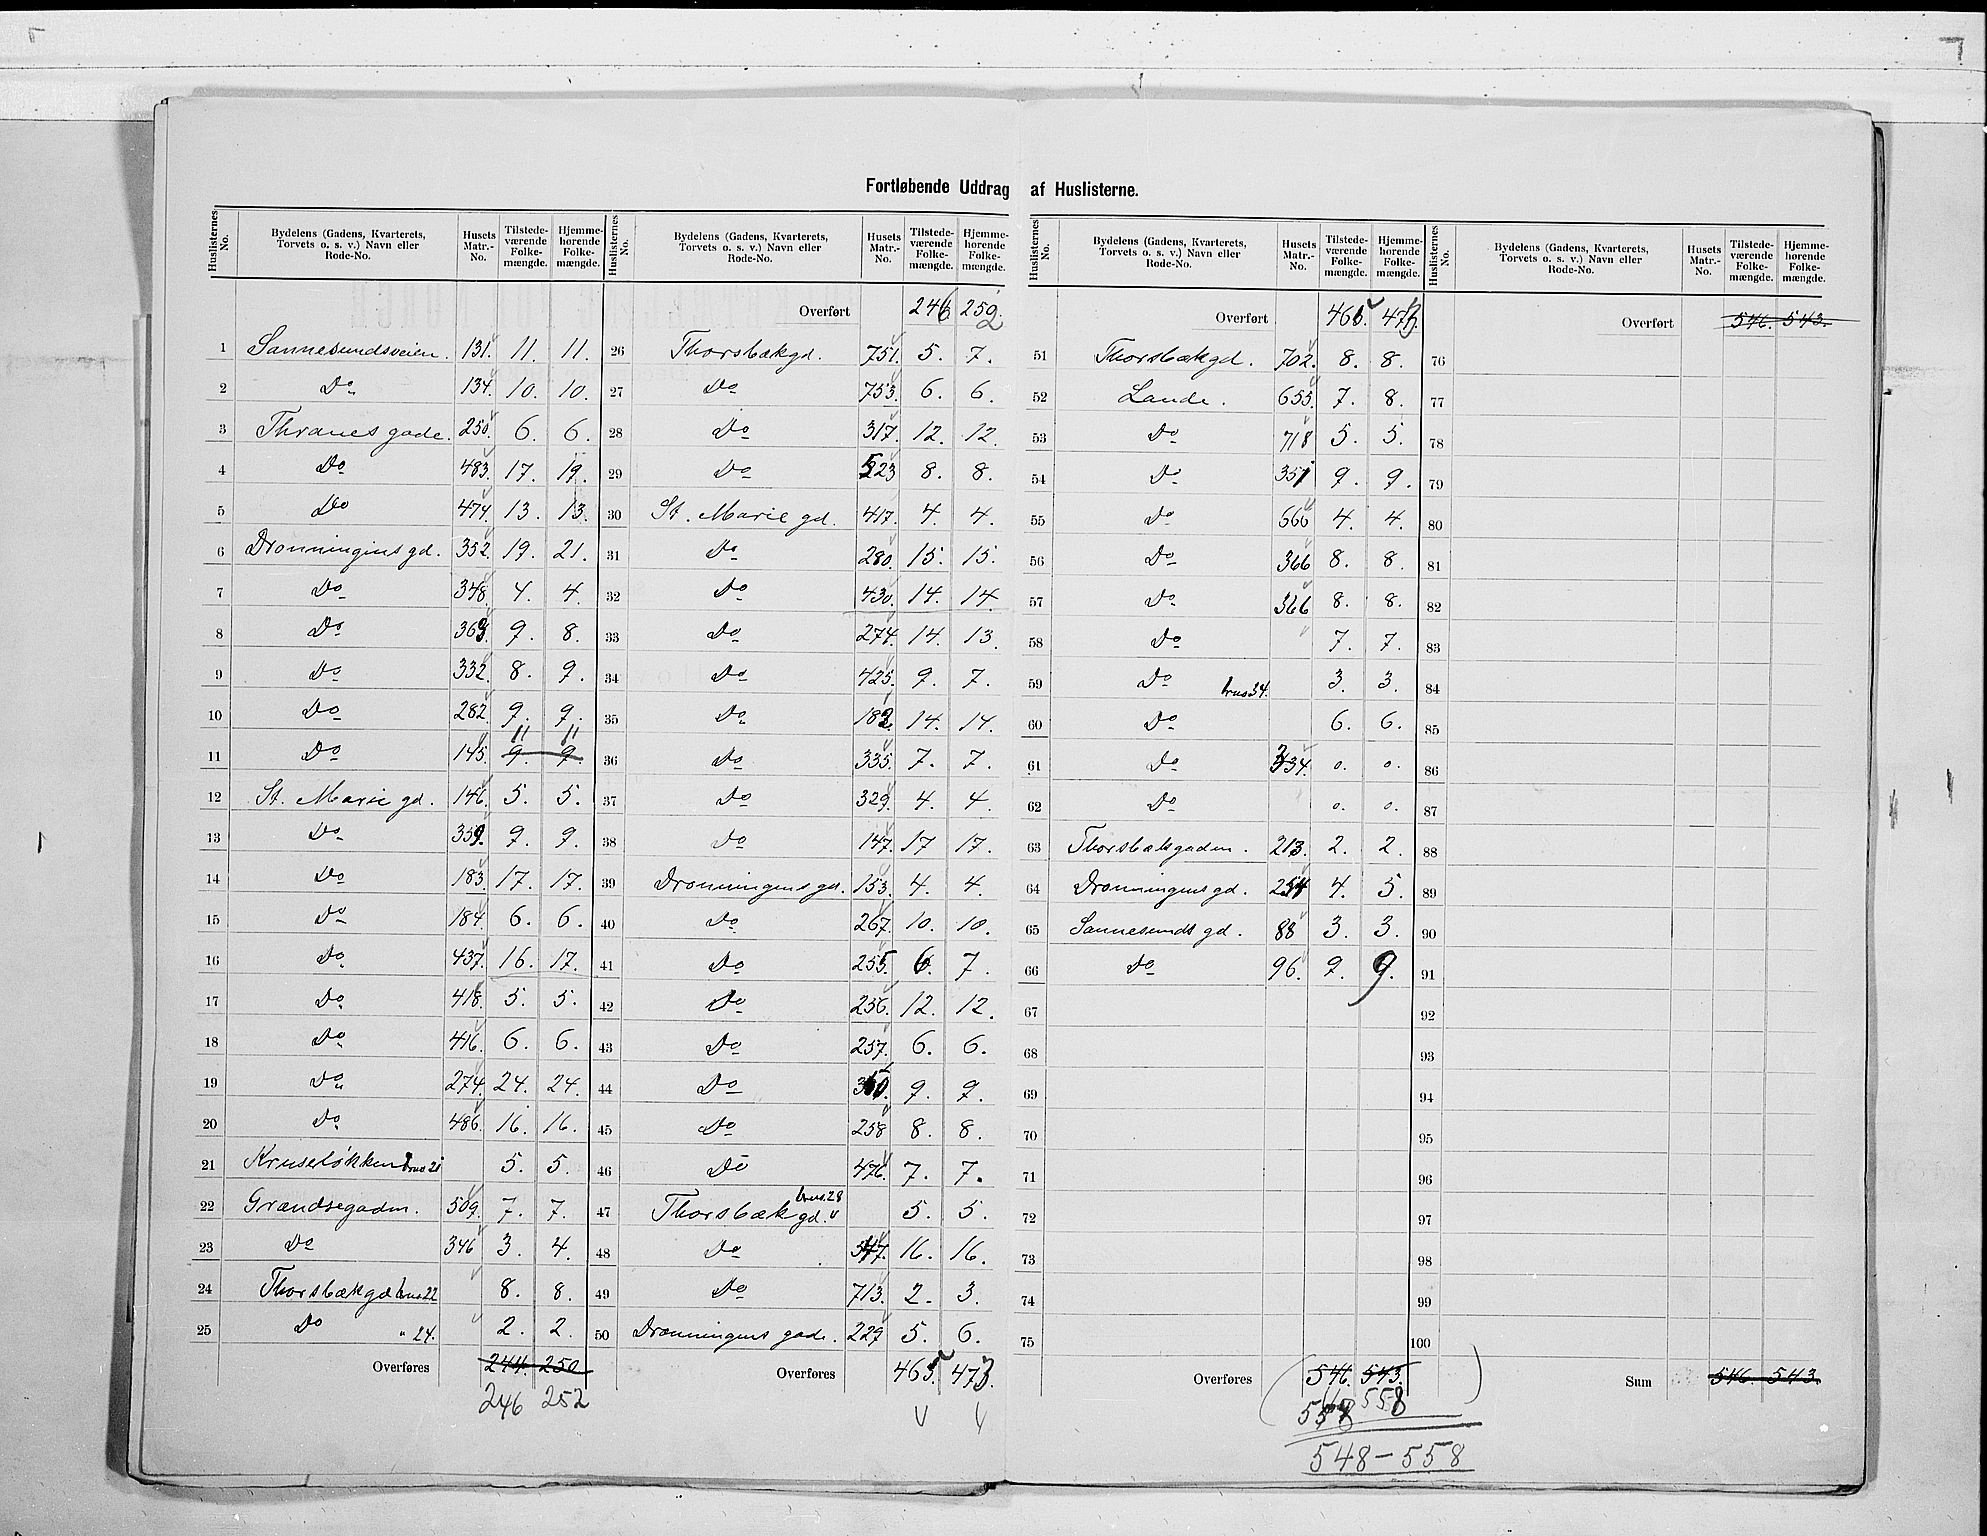 Fortløbende Uddrag af Huslisterne.
Huslisternes No. | Bydelens (Gadens, Kvarterets, Torvets o. s. v.) Navn eller Rode-No. | Husets Matr.-No. | Tilstedeværende Folkemængde. | Hjemmehørende Folkemængde.
1 Sannesundsveien. 131. 11. 11.
2 Do 134. 10. 10.
3 Thranes gade. 250. 6. 6.
4 Do 483. 17. 19.
5 Do 474. 13. 13.
6 Dronningens gd. 352. 19. 21.
7 Do 348. 4. 4.
8 Do 363. 9. 8.
9 Do 332. 8. 9.
10 Do 282. 9. 9.
11 11
11 Do 145. 9. 9.
12 St. Marie gd. 146. 5. 5.
13 Do 359. 9. 9.
14 Do 183. 17. 17.
15 Do 184. 6. 6.
16 Do 437. 16. 17.
17 Do 418. 5. 5.
18 Do 416. 6. 6.
19 Do 274. 24. 24.
20 Do 486. 16. 16.
21 Kruseløkken brus 21 5. 5.
22 Grændsegaden. 509. 7. 7.
23 Do 346 3. 4.
24 Thorsbækgd brus 22 8. 8.
25 Do " 24. 2. 2.
Overføres 244. 250
246 252
Huslisternes No. | Bydelens (Gadens, Kvarterets, Torvets o. s. v.) Navn eller Rode-No. | Husets Matr.-No. | Tilstedeværende Folkemængde. | Hjemmehørende Folkemængde.
Overført 246 252
26 Thorsbækgd. 751. 5. 7.
27 Do 753. 6. 6.
28 Do 317. 12. 12.
29 Do 523 8. 8.
30 St. Marie gd. 417. 4. 4.
31 Do 280. 15. 15.
32 Do 430. 14. 14.
33 Do 274. 14. 13.
34 Do 425. 9. 7.
35 Do 182. 14. 14.
36 Do 335. 7. 7.
37 Do 329. 4. 4.
38 Do 147. 17 17.
39 Dronningens gd. 153. 4. 4.
40 Do 267. 10. 10.
41 Do 255. 6. 7.
42 Do 256. 12. 12.
43 Do 257. 6. 6.
44 Do 9. 9.
45 Do 258 8. 8.
46 Do 476. 7. 7.
47 Thorsbæk gd. brus. 28 5. 5.
48 Do 547. 16. 16.
49 Do 713. 2. 3.
50 Dronningens gade. 229 5. 6.
Overføres 465. 473.
Huslisternes No. | Bydelens (Gadens, Kvarterets, Torvets o. s. v.) Navn eller Rode-No. | Husets Matr.-No. | Tilstedeværende Folkemængde. | Hjemmehørende Folkemængde.
Overført 465. 473.
51 Thorsbækgd. 702. 8. 8.
52 Lande. 655. 7. 8.
53 Do 718 5. 5.
54 Do 351 9. 9.
55 Do 666 4. 4.
56 Do 366 8. 8.
57 Do 366 8. 8.
58 Do 7. 7.
59 Do brus 34. 3. 3.
60 Do 6. 6.
61 Do 334. 0. 0.
62 Do 0. 0.
63 Thorsbækgaden. 213. 2. 2.
64 Dronningens gd. 254 4. 5.
65 Sannesunds gd. 88 3. 3.
66 Do 96. 9. 9.
67
68
69
70
71
72
73
74
75
Overføres 546. 543.
558
548-558
Huslisternes No. | Bydelens (Gadens, Kvarterets, Torvets o. s. v.) Navn eller Rode-No. | Husets Matr.-No. | Tilstedeværende Folkemængde. | Hjemmehørende Folkemængde.
Overført 546. 543.
76
77
78
79
80
81
82
83
84
85
86
87
88
89
90
91
92
93
94
95
96
97
98
99
100
Sum 546. 543.